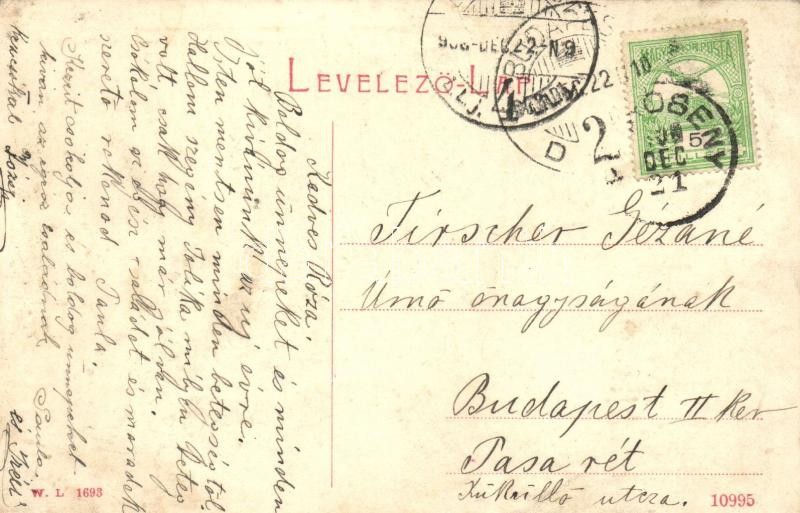 LEVELEZŐ-LAP
MAGYAR KIR. POSTA
5
908 DEC 22 - N9
4
BUDAPEST
22
2
D
908
DEC
21
Tirscher Gézáné
Úrnő őnagyságának
Budapest II Ker
Pasa rét
Küküllő utcza.
Kedves Róza!
Boldog ünnepeket és minden
jót kívánunk az uj évre.
Isten mentsen minden betegségtől.
Hallom szegény Jolika mily beteg
volt csak hogy már jól van.
Csókolom az egész családot és maradok
szerető rokonod Paula.
Kezeit csókolja és boldog ünnepeket
kíván az egész családnak Paula,
W. L 1693
10995